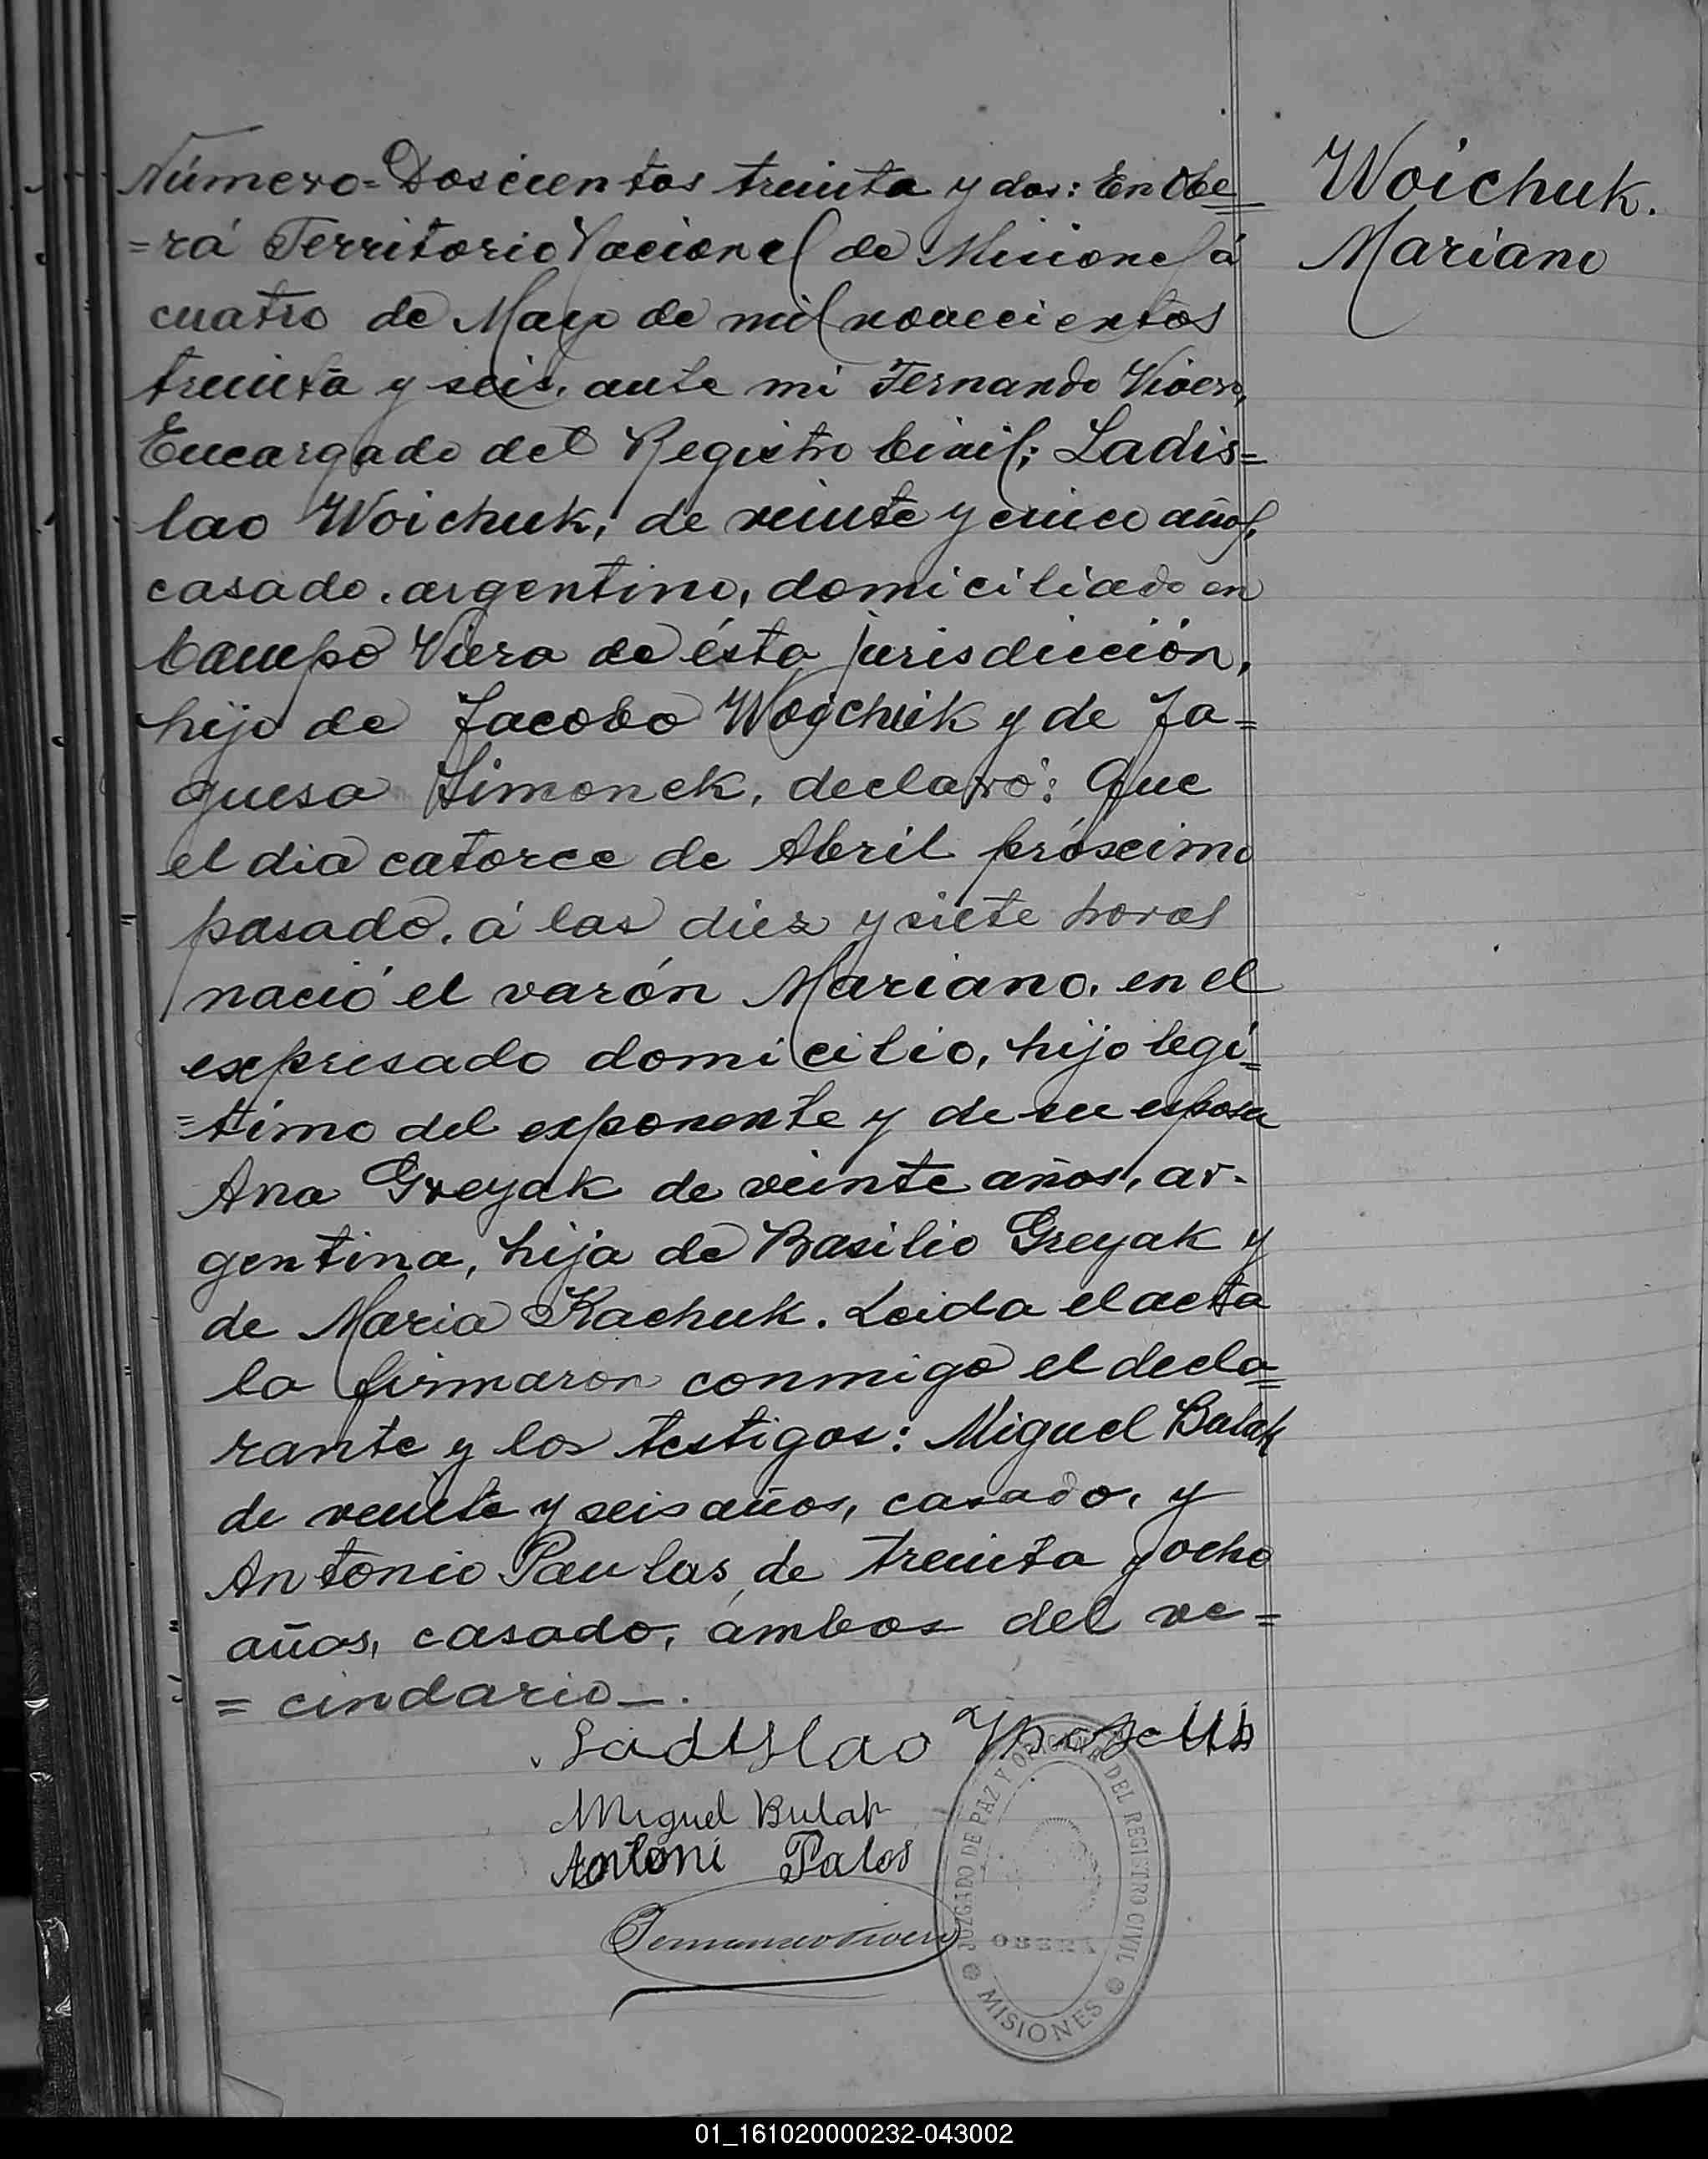 Número = Doscientos treinta y dos: En Obe=
=rá Territorio Nacional de Misiones á
cuatro de Mayo de mil novecientos
treinta y seis, ante mi Fernando Vivero,
Encargado del Registro Civil; Ladis=
lao Woichuk, de veinte y cinco años,
casado, argentino, domiciliado en
Campo Viera de ésta jurisdicción,
hijo de Jacobo Woichuk y de Ja=
quesa Simonek, declaró: Que
el dia catorce de Abril próscimo
pasado, á las diez y siete horas
nació el varón Mariano, en el
expresado domicilio, hijo legi=
=timo del exponente y de su esposa
Ana Greyak de veinte años, ar-
gentina, hija de Basilio Greyak y
de Maria Kachuk. Leida el acta
la firmaron conmigo el decla=
rante y los testigos: Miguel Bulak
de veinte y seis años, casado, y
Antonio Paulus, de treinta y ocho
años, casado, ambos del ve=
=cindario—.
Woichuk.
Mariano
Ladislao
Miguel Bulak
Antoni Palos
JUZGADO DE PAZ Y OFICINA DEL REGISTRO CIVIL
OBERÁ
MISIONES
01_161020000232-043002